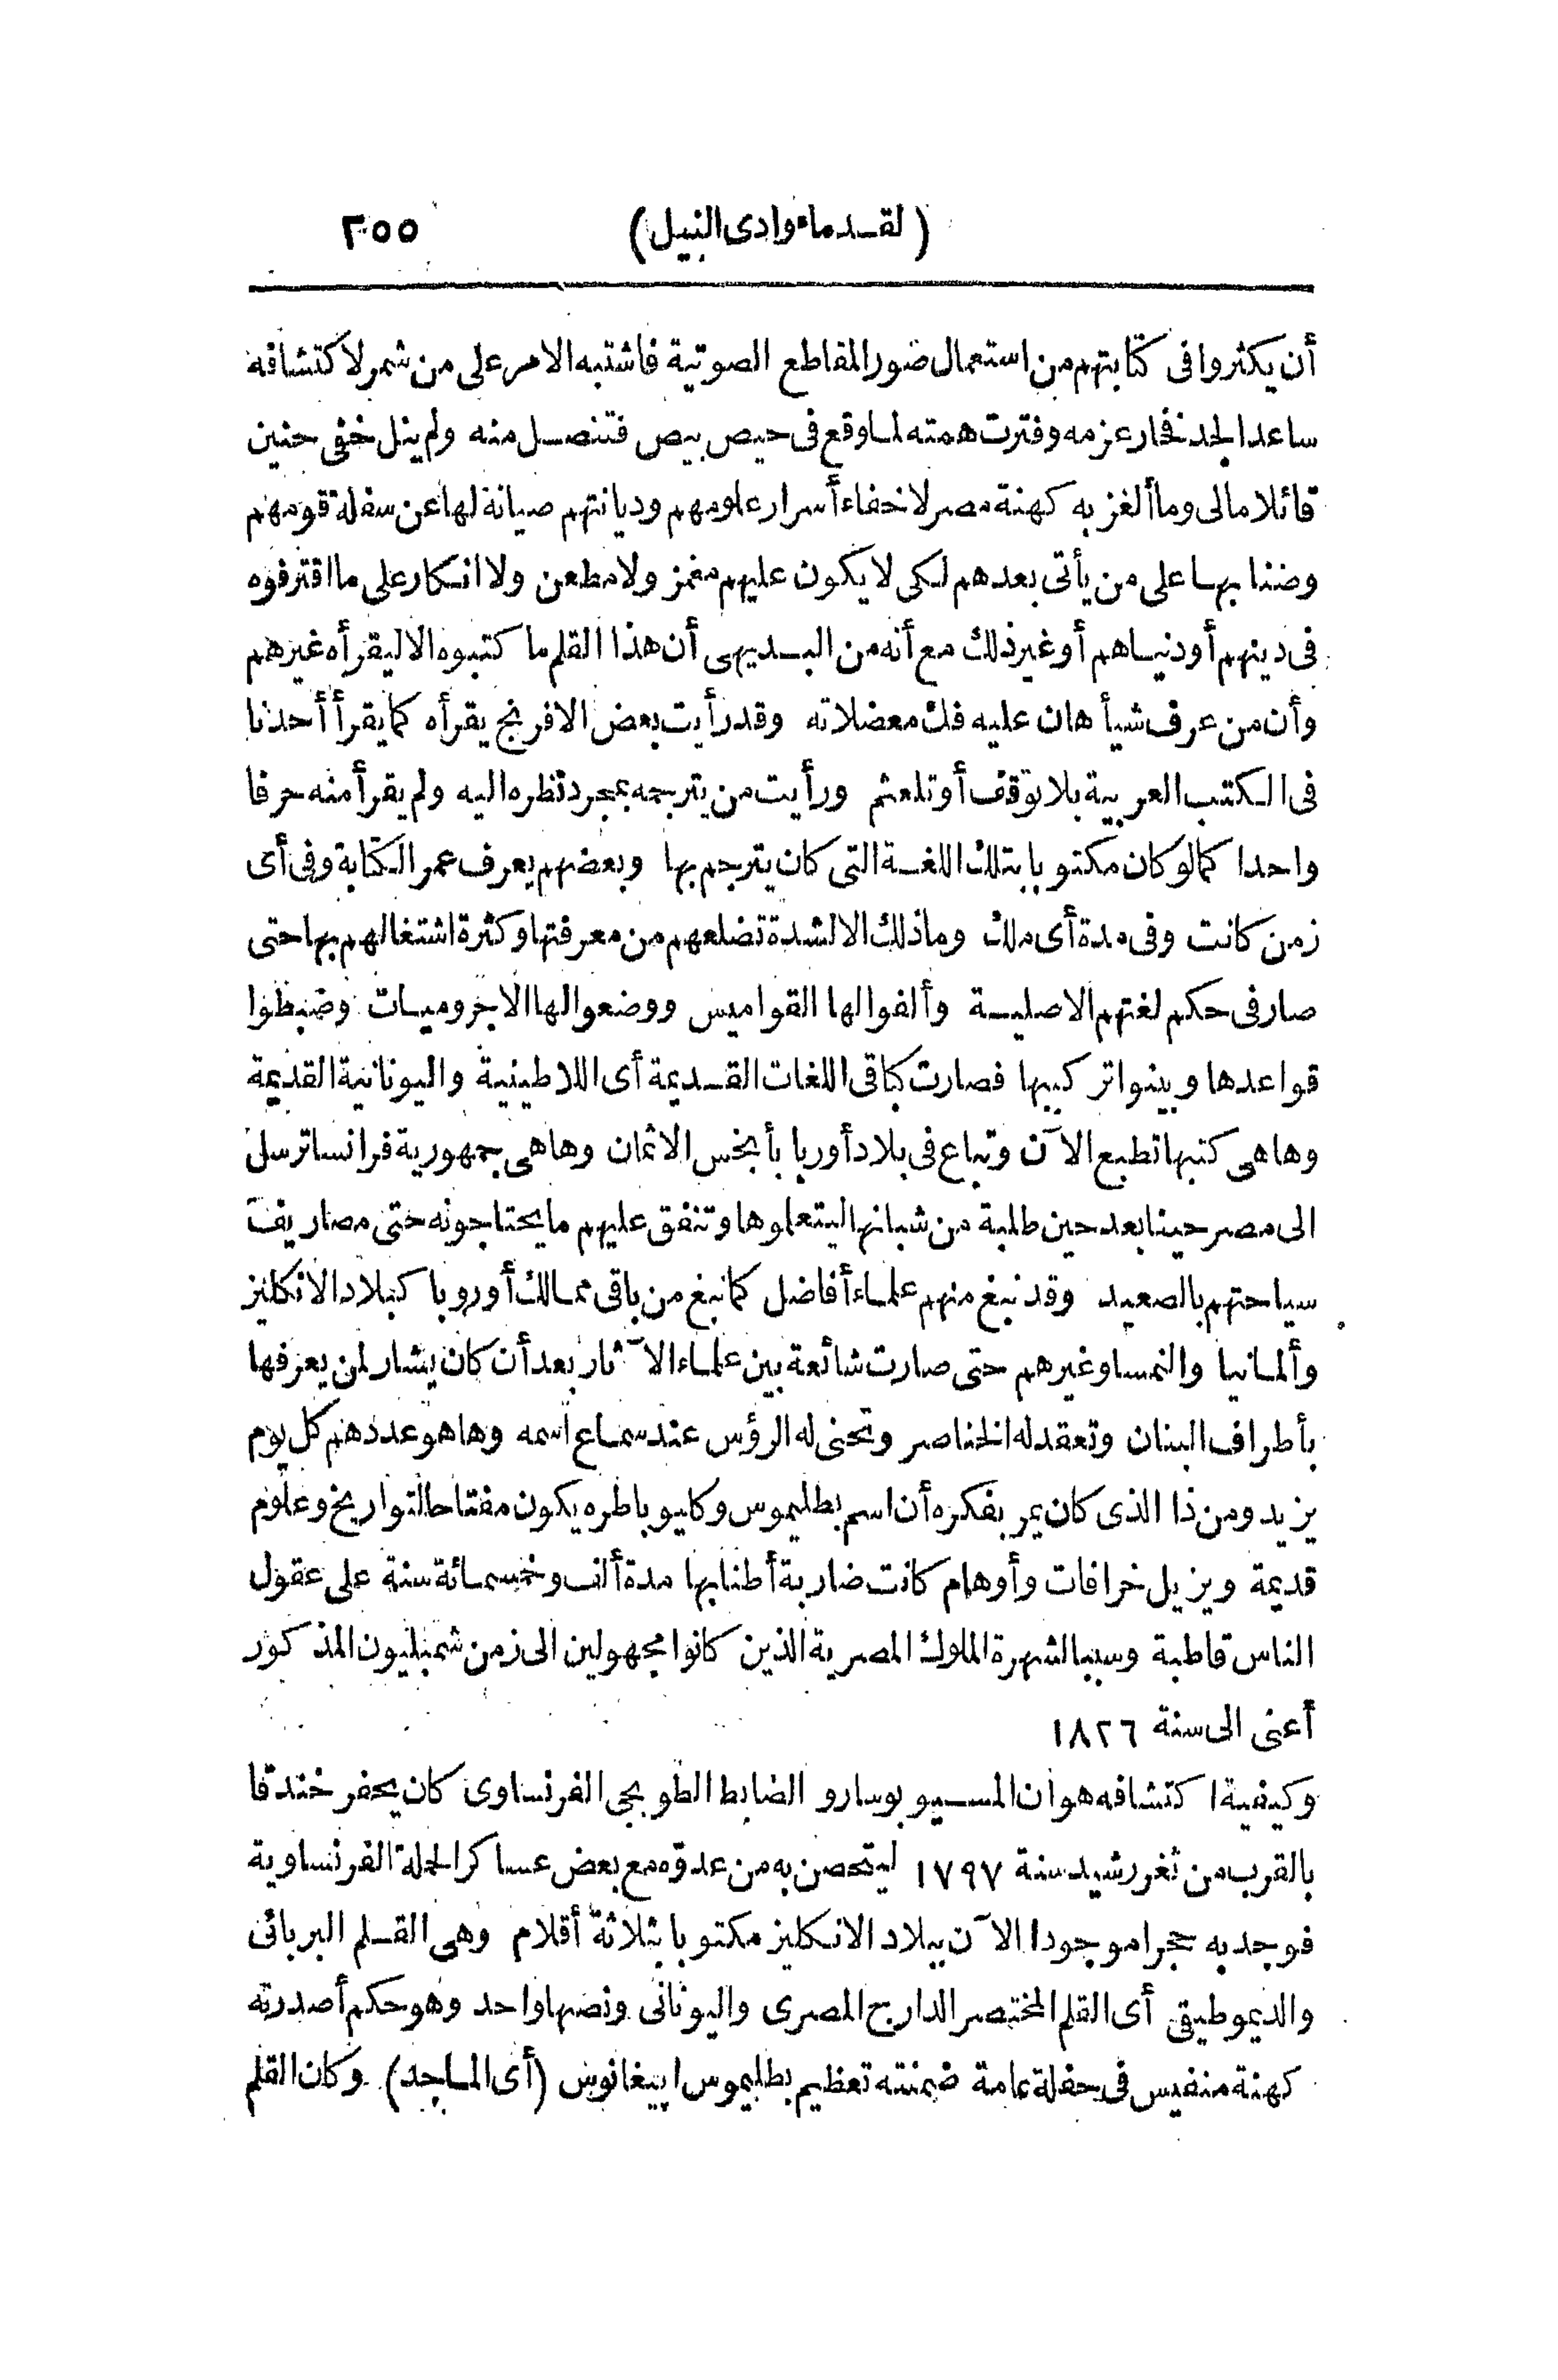 (لقدماء وادى النيل) ٢٥٥
أن يكثروا فى كتابتهم من استعمال صور المقاطع الصوتية فاشتبه الامر على من شمر لاكتشافه
ساعد الجد نخار عزمه وفترت همته لما وقع فى حيص بيص فتنصل منه ولم ينل خفى حنين
قائلا مالى وما ألغز به كهنة مصر لاخفاء أسرار علومهم وديانتهم صيانة لها عن سفلة قومهم
وضنا بها على من يأتى بعدهم لكى لا يكون عليهم مغمز ولا مطعن ولا انكار على ما اقترفوه
فى دينهم أو دنياهم أو غير ذلك مع أنه من البديهى أن هذا القلم ما كتبوه الا ليقرأه غيرهم
وأن من عرف شيأ هان عليه فك معضلاته وقد رأيت بعض الافرنج يقرأه كما يقرأ أحدنا
فى الكتب العربية بلا توقف أو تلعثم ورأيت من يترجمه بمجرد نظره اليه ولم يقرأ منه حرفا
واحدا كما لو كان مكتوبا بتلك اللغة التى كان يترجم بها وبعضهم يعرف عمر الكتابة وفى أى
زمن كانت وفى مدة أى ملك وما ذلك الا لشدة تضلعهم من معرفتها وكثرة اشتغالهم بها حتى
صار فى حكم لغتهم الاصلية وألفوا لها القواميس ووضعوا لها الاجروميات وضبطوا
قواعدها وبينوا تركيبها فصارت كباقى اللغات القديمة أى اللاطينية واليونانية القديمة
وها هى كتبها تطبع الآن وتباع فى بلاد أوربا بأبخس الاثمان وها هى جمهورية فرانسا ترسل
الى مصر حينا بعد حين طلبة من شبانها ليتعلموها وتنفق عليهم ما يحتاجونه حتى مصاريف
سياحتهم بالصعيد وقد نبغ منهم علماء أفاضل كما نبغ من باقى ممالك أوروبا كبلاد الانكليز
وألمانيا والنمسا وغيرهم حتى صارت شائعة بين علماء الآثار بعد أن كان يشار لمن يعرفها
بأطراف البنان وتعقد له الخناصر وتحنى له الرؤس عند سماع اسمه وها هو عددهم كل يوم
يزيد ومن ذا الذى كان يمر بفكره أن اسم بطليموس وكليوباطره يكون مفتاحا لتواريخ وعلوم
قديمة ويزيل خرافات وأوهام كانت ضاربة أطنابها مدة ألف وخمسمائة سنة على عقول
الناس قاطبة وسببا لشهرة الملوك المصرية الذين كانوا مجهولين الى زمن شمبليون المذكور
أعنى الى سنة ١٨٢٦
وكيفية اكتشافه هو ان المسيو بوسارو الضابط الطوبجى الفرنساوى كان يحفر خندقا
بالقرب من ثغر رشيد سنة ١٧٩٧ ليتحصن به من عدوه مع بعض عساكر الحملة الفرنساوية
فوجد به حجرا موجودا الآن ببلاد الانكليز مكتوبا بثلاثة أقلام وهى القلم البربائى
والديموطيقى أى القلم المختصر الدارج المصرى واليونانى ونصها واحد وهو حكم أصدرته
كهنة منفيس فى حفلة عامة ضمنته تعظيم بطليموس ابيفانوس (أى الماجد) وكان القلم